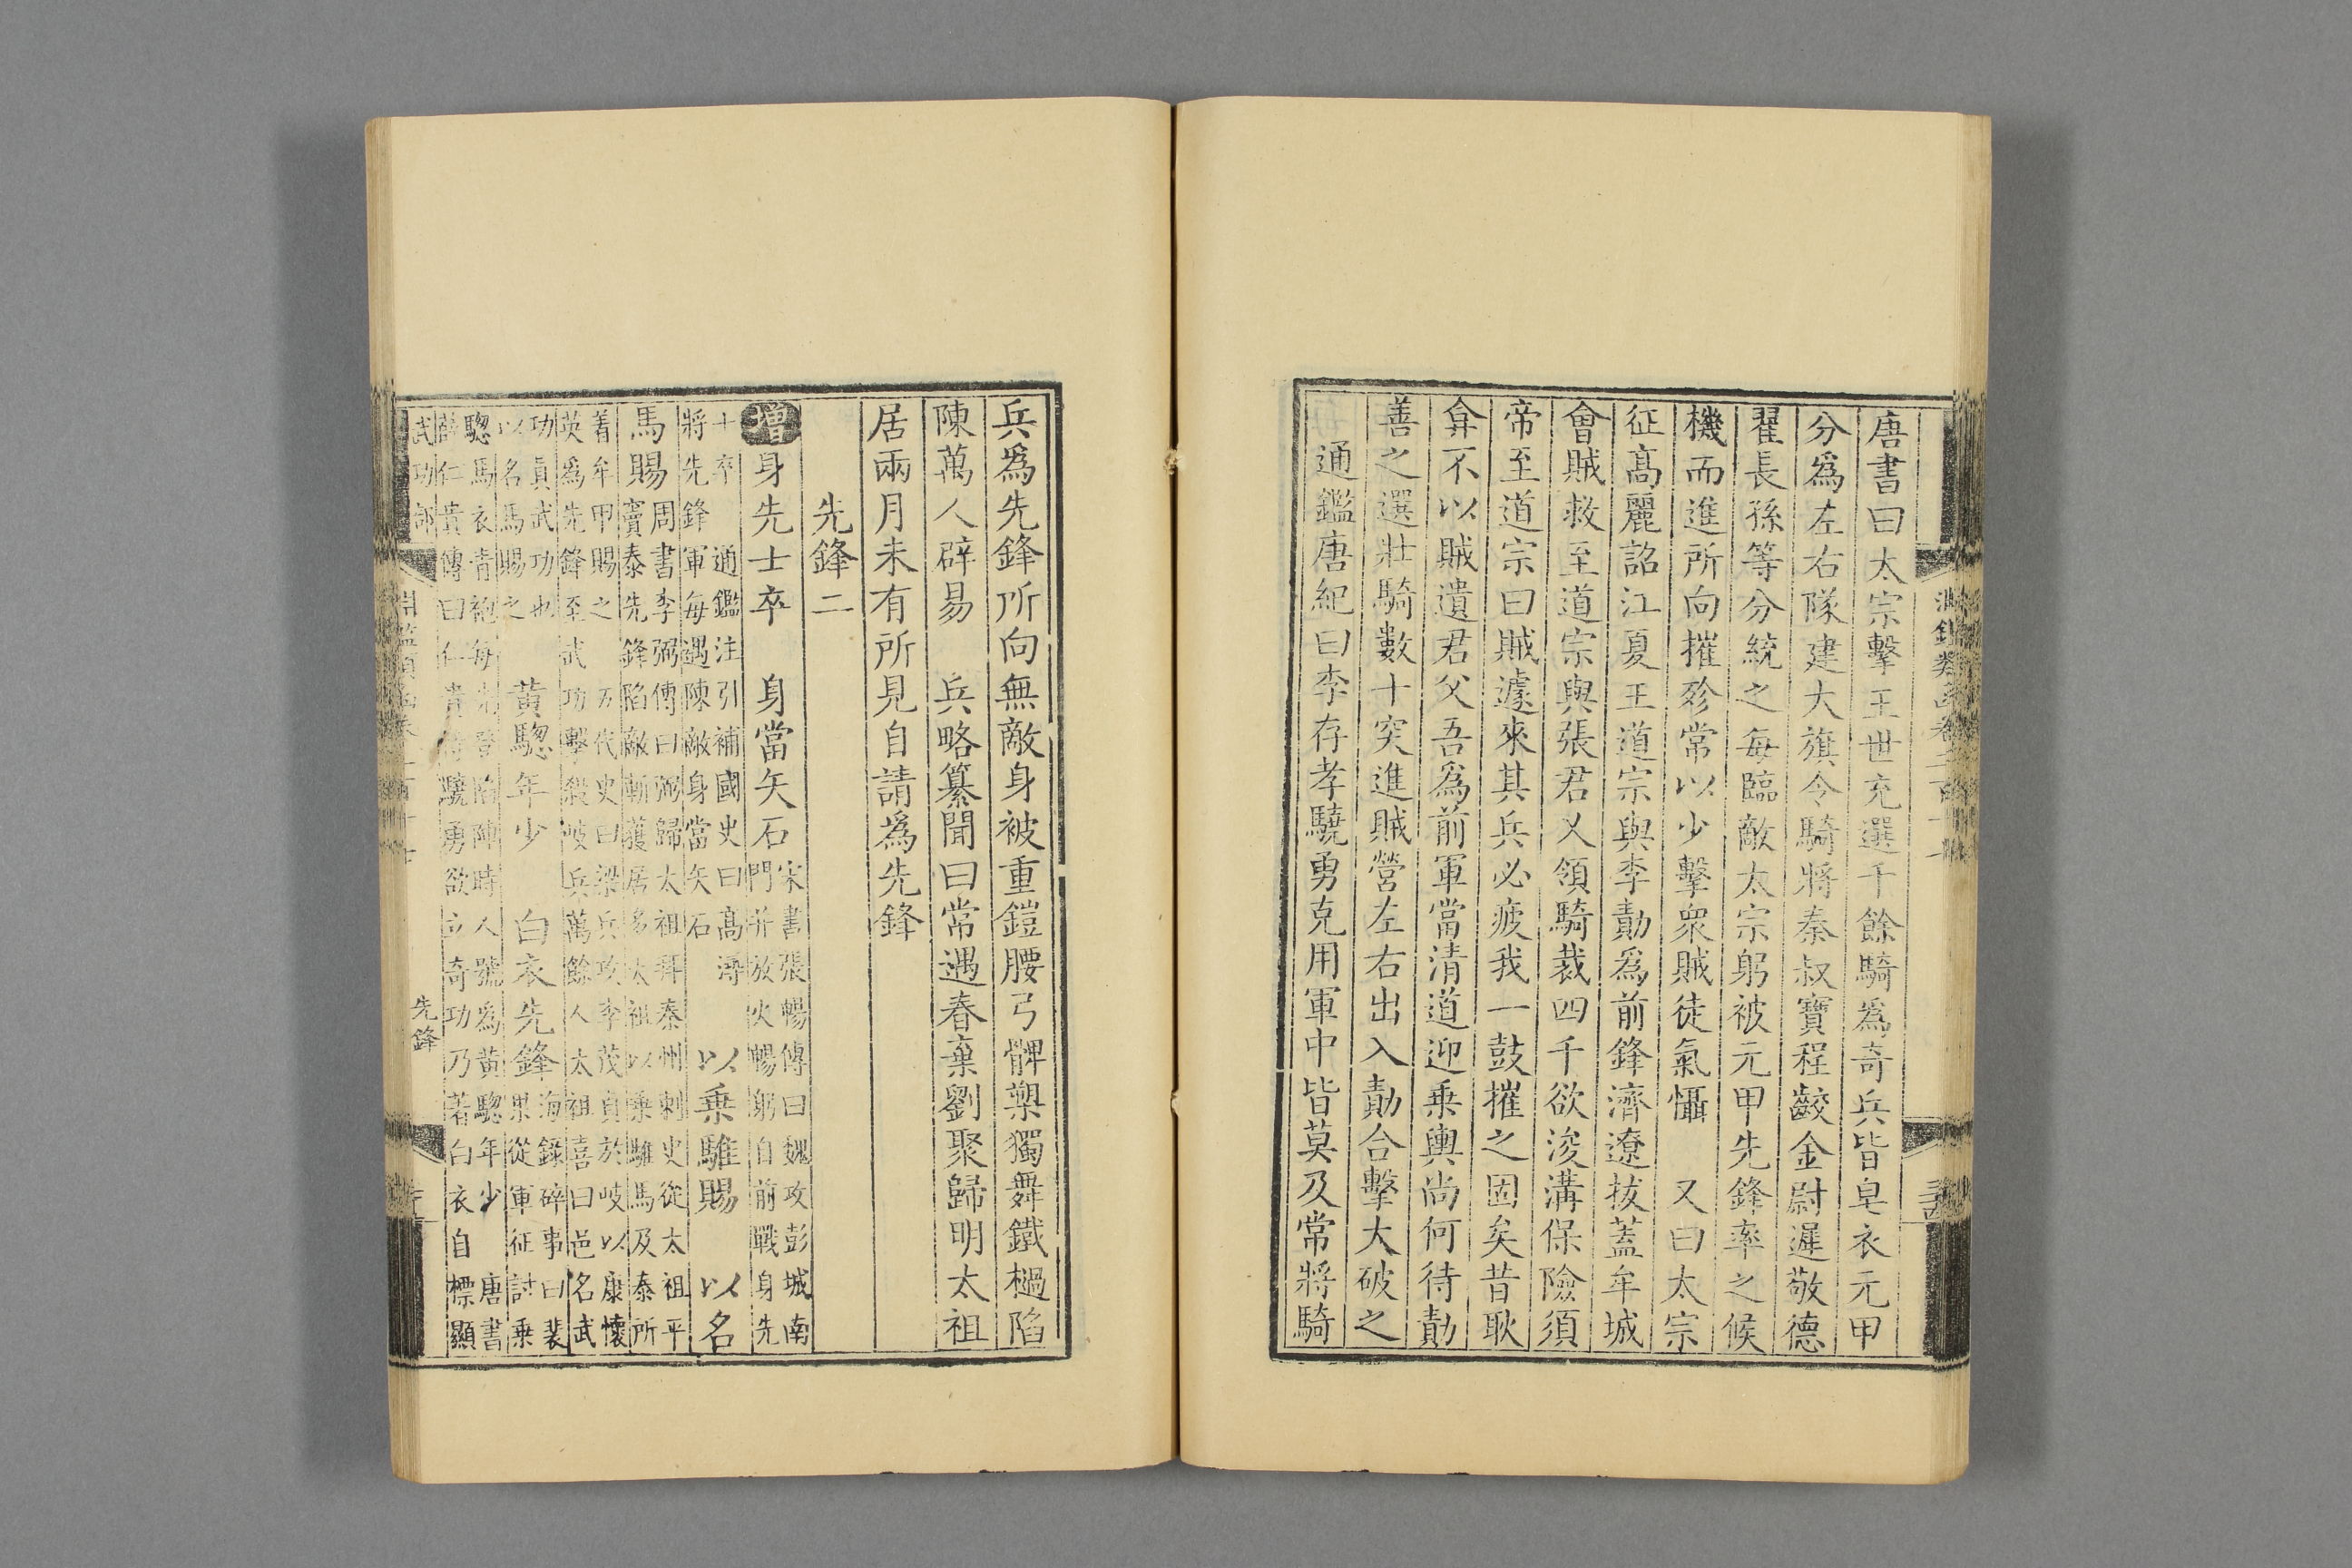 唐書曰太宗擊王世充選千餘騎爲奇兵皆皁衣元甲
分爲左右隊建大旗令騎將秦叔寶程齩金尉遲敬德
翟長孫等分統之每臨敵太宗躬被元甲先鋒率之候
機而進所向摧殄常以少擊衆賊徒氣懾　又曰太宗
征高麗詔江夏王道宗與李勣爲前鋒濟遼拔蓋牟城
會賊救至道宗與張君乂領騎裁四千欲浚溝保險須
帝至道宗曰賊遽來其兵必疲我一鼓摧之固矣昔耿
弇不以賊遺君父吾爲前軍當清道迎乗輿尚何待勣
善之選壯騎數十突進賊營左右出入勣合擊大破之
通鑑唐紀曰李存孝驍勇克用軍中皆莫及常將騎
兵爲先鋒所向無敵身被重鎧腰弓髀槊獨舞鐵檛陷
陳萬人辟易　兵略纂聞曰常遇春棄劉聚歸明太祖
居兩月未有所見自請爲先鋒
先鋒二
增身先士卒　身當矢石
宋書張暢傳曰魏攻彭城南
門并放火暢躬自前戰身先
士卒　通鑑注引補國史曰高潯
將先鋒軍每遇陳敵身當矢石
以乗騅賜　以名
馬賜
周書李弼傳曰弼歸太祖拜秦州刺史從太祖平
竇泰先鋒陷敵斬獲居多太祖以乗騅馬及泰所
着牟甲賜之　五代史曰梁兵攻李茂貞於岐以康懷
英爲先鋒至武功擊殺岐兵萬餘人太祖喜曰邑名武
功真武功也
以名馬賜之
黄驄年少　白衣先鋒
海錄碎事曰裴
果從軍征討乗
驄馬衣青袍每先登陷陣時人號為黄驄年少　唐書
薛仁貴傳曰仁貴恃驍勇欲立奇功乃著白衣自標顯
武功部
先鋒